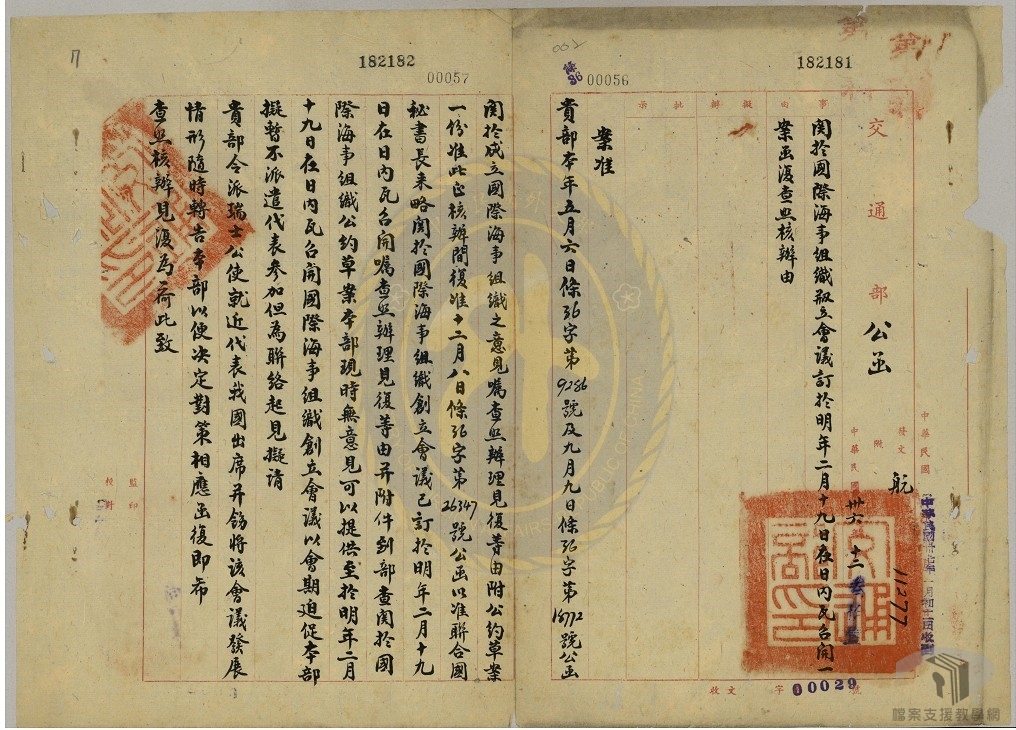 182181
中華民國
發文 航 11277
附
中華民國 卅六 十二
交通部 公函
事由
關於國際海事組織設立會議訂於明年二月十九日在日內瓦召開一
案函復查照核辦由
擬辦
批示
收文 字 00029 號
002
00056
案准
貴部本年五月六日條36字第9286號及九月九日條36字第18772號公函
182182
00057
7
關於成立國際海事組織之意見囑查照辦理見復等由附公約草案
一份准此正核辦間復准十二月八日條36字第26347號公函以准聯合國
秘書長來略關於國際海事組織創立會議已訂於明年二月十九
日在日內瓦召開囑查照辦理見復等由并附件到部查關於國
際海事組織公約草案本部現時無意見可以提供至於明年二月
十九日在日內瓦召開國際海事組織創立會議以會期迫促本部
擬暫不派遣代表參加但為聯絡起見擬請
貴部令派瑞士公使就近代表我國出席并飭將該會議發展
情形隨時轉告本部以便決定對策相應函復即希
查照核辦見復為荷此致
監印
校對
檔案支援教學網